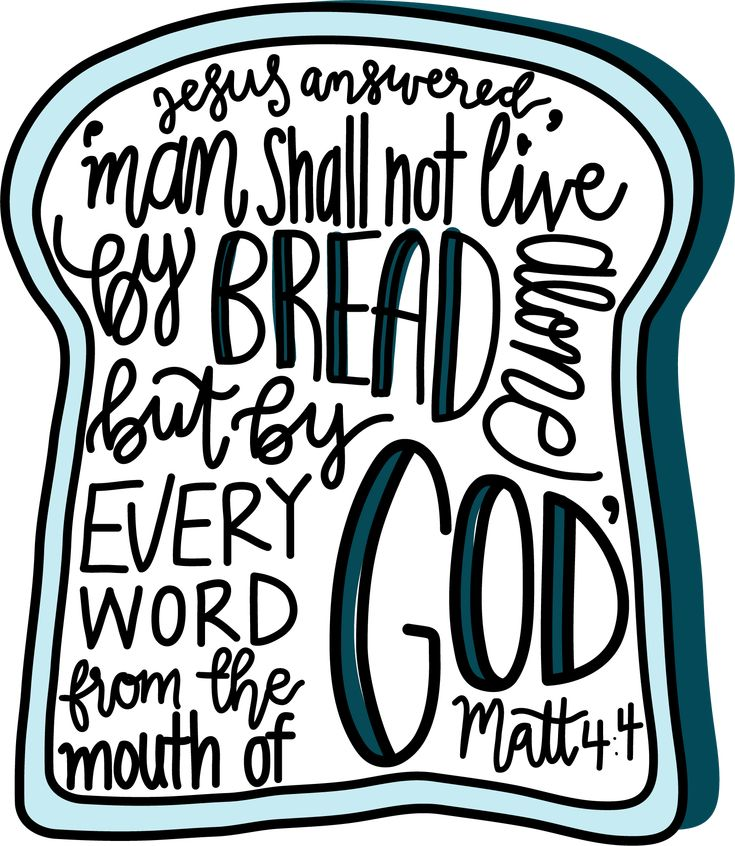 Jesus answered,
'man shall not live
by BREAD alone
but by
EVERY
WORD
from the
mouth of
GOD'
Matt 4:4